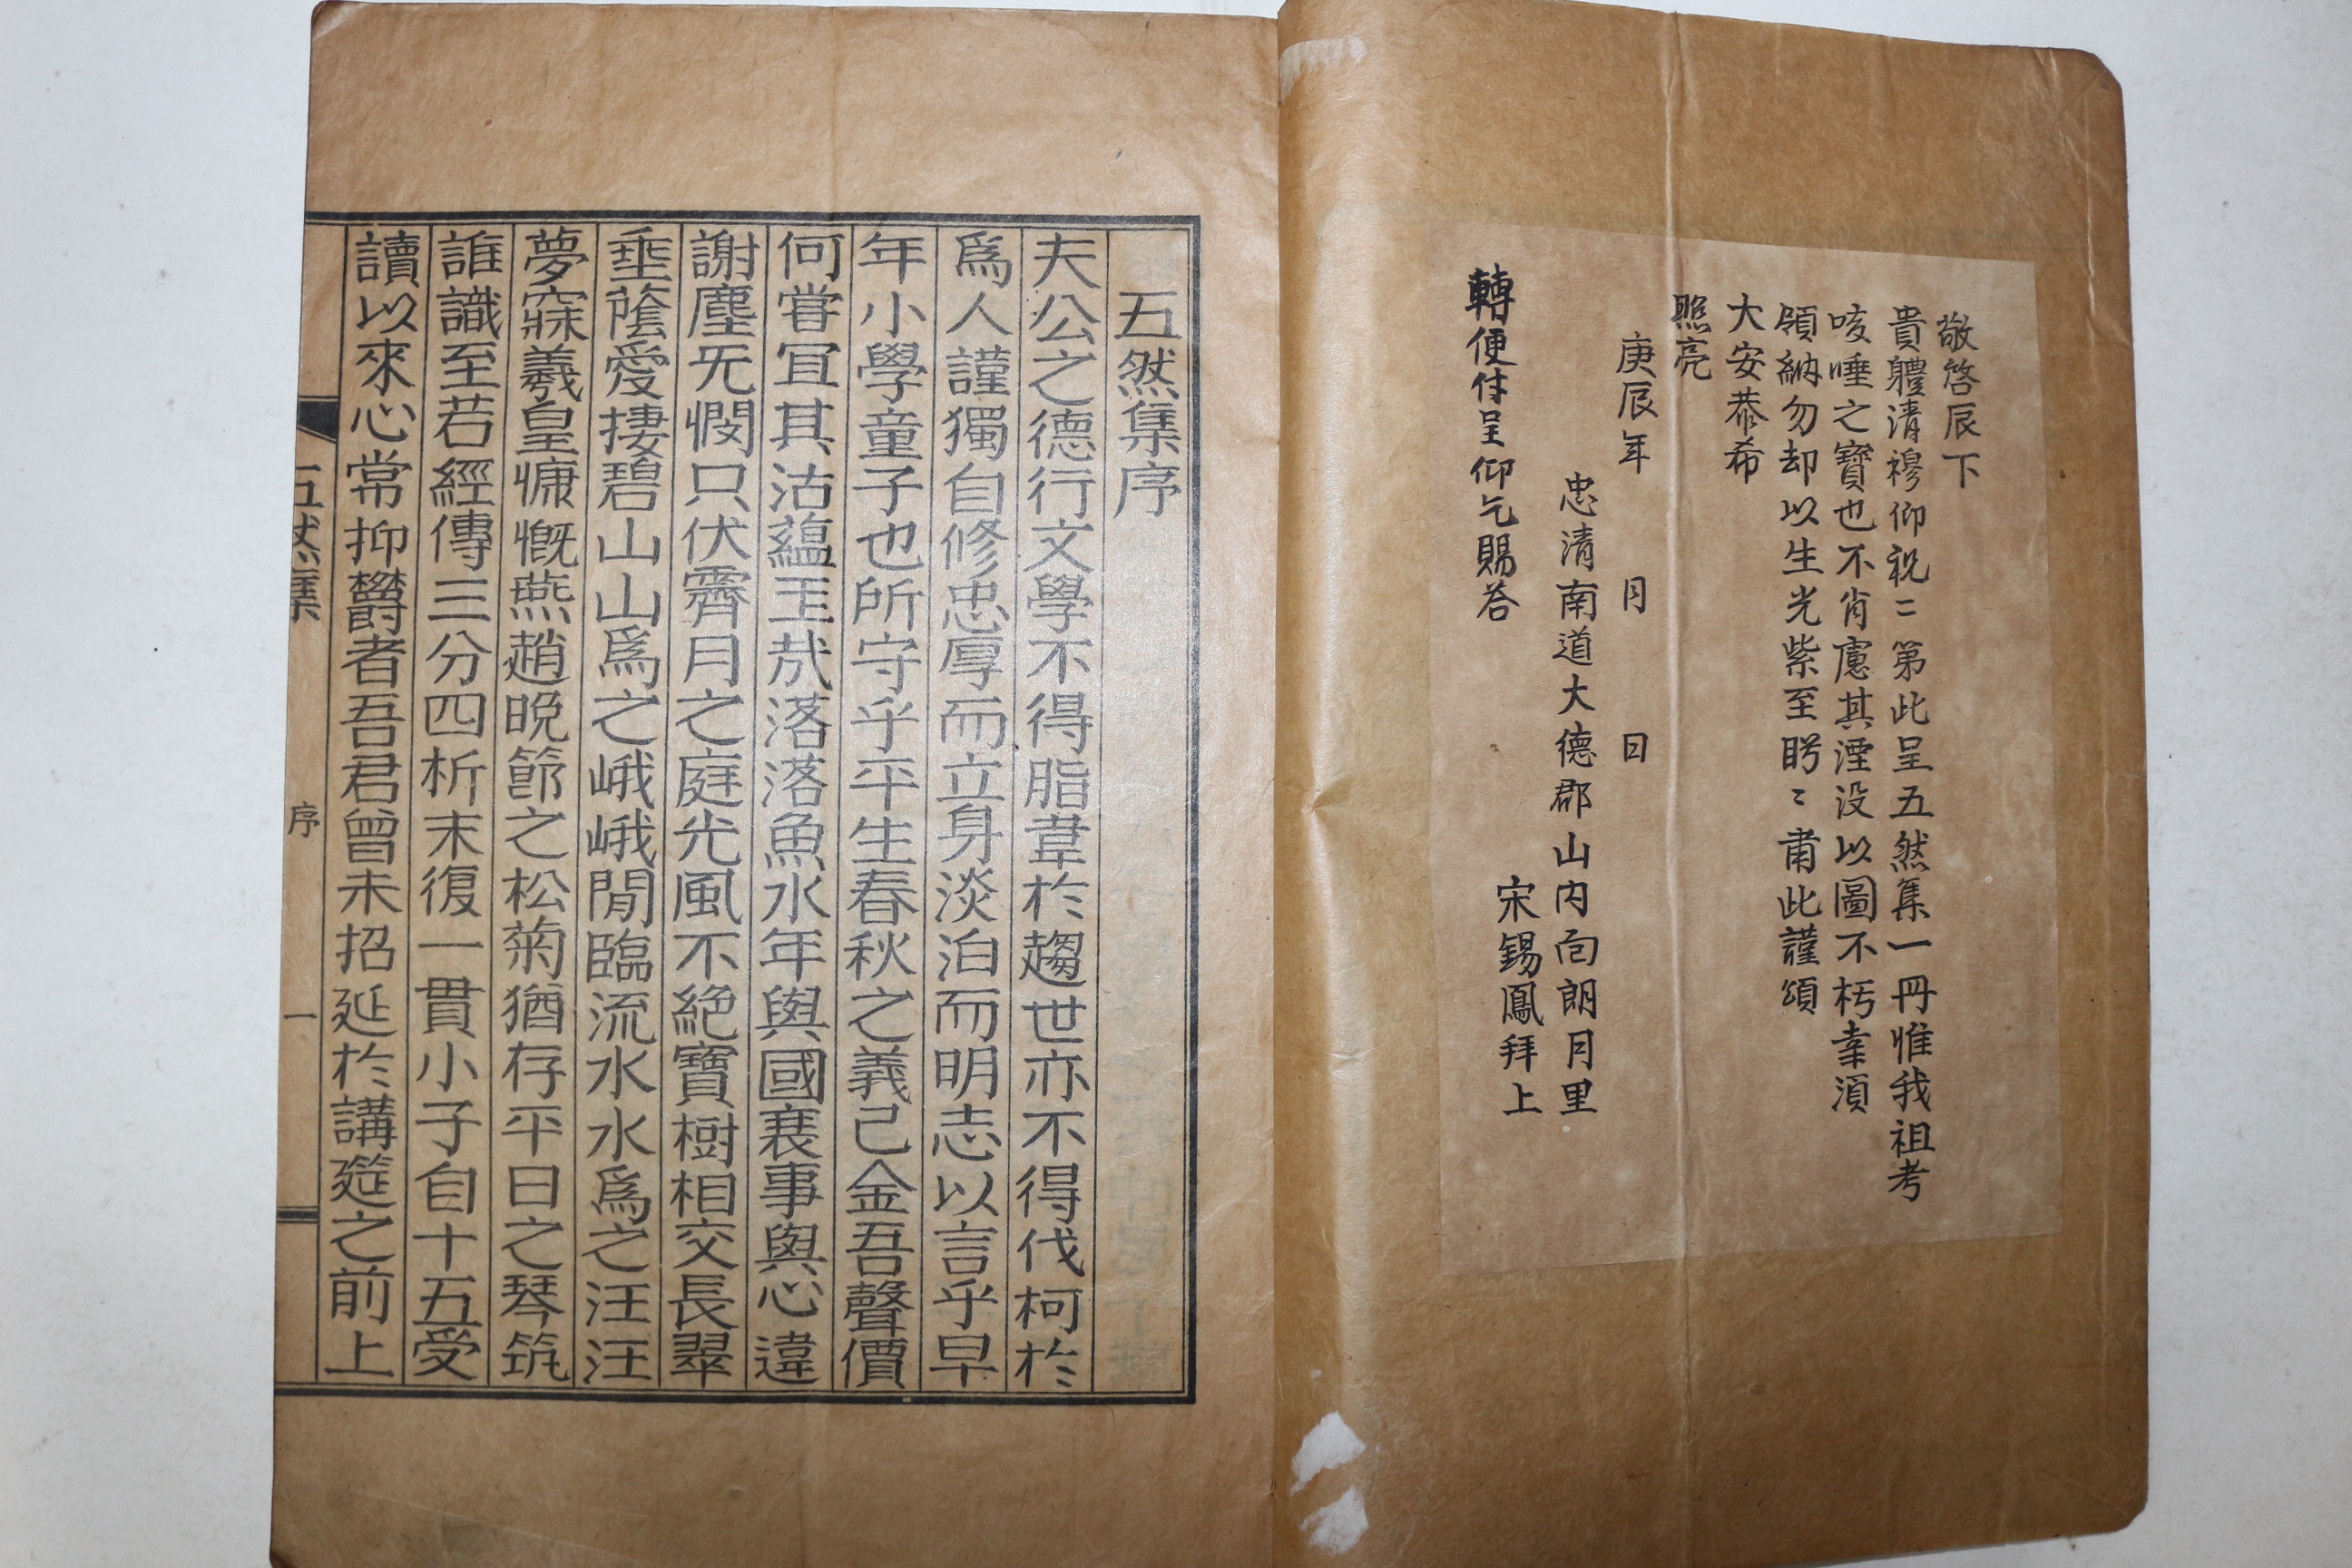 敬啓辰下
貴軆清穆仰祝〻第此呈五然集一冊惟我祖考
咳唾之寶也不肖慮其湮没以圖不朽幸湏
領納勿却以生光紫至眄〻肅此謹頌
大安恭希
照亮
庚辰年 月 日
忠清南道大德郡山内面朗月里
宋錫鳳拜上
轉便付呈仰乞賜答
五然集序
夫公之德行文學不得脂韋於趨世亦不得伐柯於
爲人謹獨自修忠厚而立身淡泊而明志以言乎早
年小學童子也所守乎平生春秋之義己金吾聲價
何嘗冝其沽蘊玉㢤落落魚水年與國衰事與心違
謝塵旡憫只伏霽月之庭光風不絶寶樹相交長翠
垂蔭愛捿碧山山爲之峨峨閒臨流水水爲之汪汪
夢寐羲皇慷慨燕趙晩節之松菊猶存平日之琴筑
誰識至若經傳三分四析末復一貫小子自十五受
讀以來心常抑欝者吾君曾未招延於講筵之前上
五然集 序 一